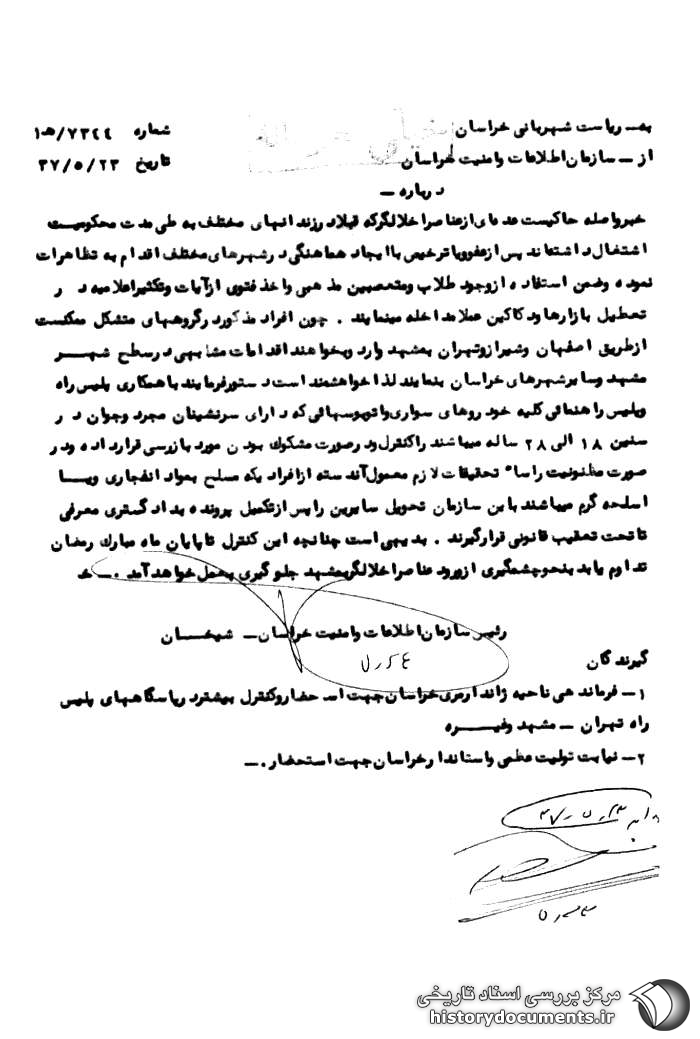 به- ریاست شهربانی خراسان
شماره ۷۳٤٤/هـ۱
از- سازمان اطلاعات وامنیت خراسان
تاریخ ۳۷/٥/۲۳
درباره -
خبر واصله حاکیست عده ای از عناصر اخلالگر که قبلا در زندانهای مختلف به طی مدت محکومیت
اشتغال داشته اند پس از عفو و یا ترخیص با ایجاد هماهنگی در شهرهای مختلف اقدام به تظاهرات
نموده و ضمن استفاده از وجود طلاب و متعصبین مذهبی و اخذ فتوی از آیات و تکثیر اعلامیه در
تعطیل بازارها و دکاکین عملا مداخله مینمایند . چون افراد مذکور در گروههای متشکل ممکنست
از طریق اصفهان و شیراز و تهران بمشهد وارد و بخواهند اقدامات مشابهی در سطح شهر
مشهد و سایر شهرهای خراسان بنمایند لذا خواهشمند است دستور فرمایند با همکاری پلیس راه
و پلیس راهنمائی کلیه خودروهای سواری و اتوبوسهائی که دارای سرنشینان مجرد و جوان در
سنین ۱۸ الی ۲۸ ساله میباشند را کنترل و در صورت مشکوک بودن مورد بازرسی قرار داده و در
صورت مظنونیت راسا" تحقیقات لازم معمول آندسته از افراد یکه مسلح بمواد انفجاری و یا
اسلحه گرم میباشند باین سازمان تحویل سایرین را پس از تکمیل پرونده بدادگستری معرفی
تا تحت تعقیب قانونی قرار گیرند . بدیهی است چنانچه این کنترل تا پایان ماه مبارک رمضان
تداوم یابد بنحو چشمگیری از ورود عناصر اخلالگر بمشهد جلوگیری بعمل خواهد آمد .- خ
رئیس سازمان اطلاعات و امنیت خراسان - شیخان
گیرندگان
۱- فرماندهی ناحیه ژاندارمری خراسان جهت استحضار و کنترل بیشتر در پاسگاههای پلیس
راه تهران - مشهد و غیره
۲- نیابت تولیت عظمی و استاندار خراسان جهت استحضار .-
۳۷٫٥٫۲۳
٥٫۲۳
مرکز بررسی اسناد تاریخی
historydocuments.ir